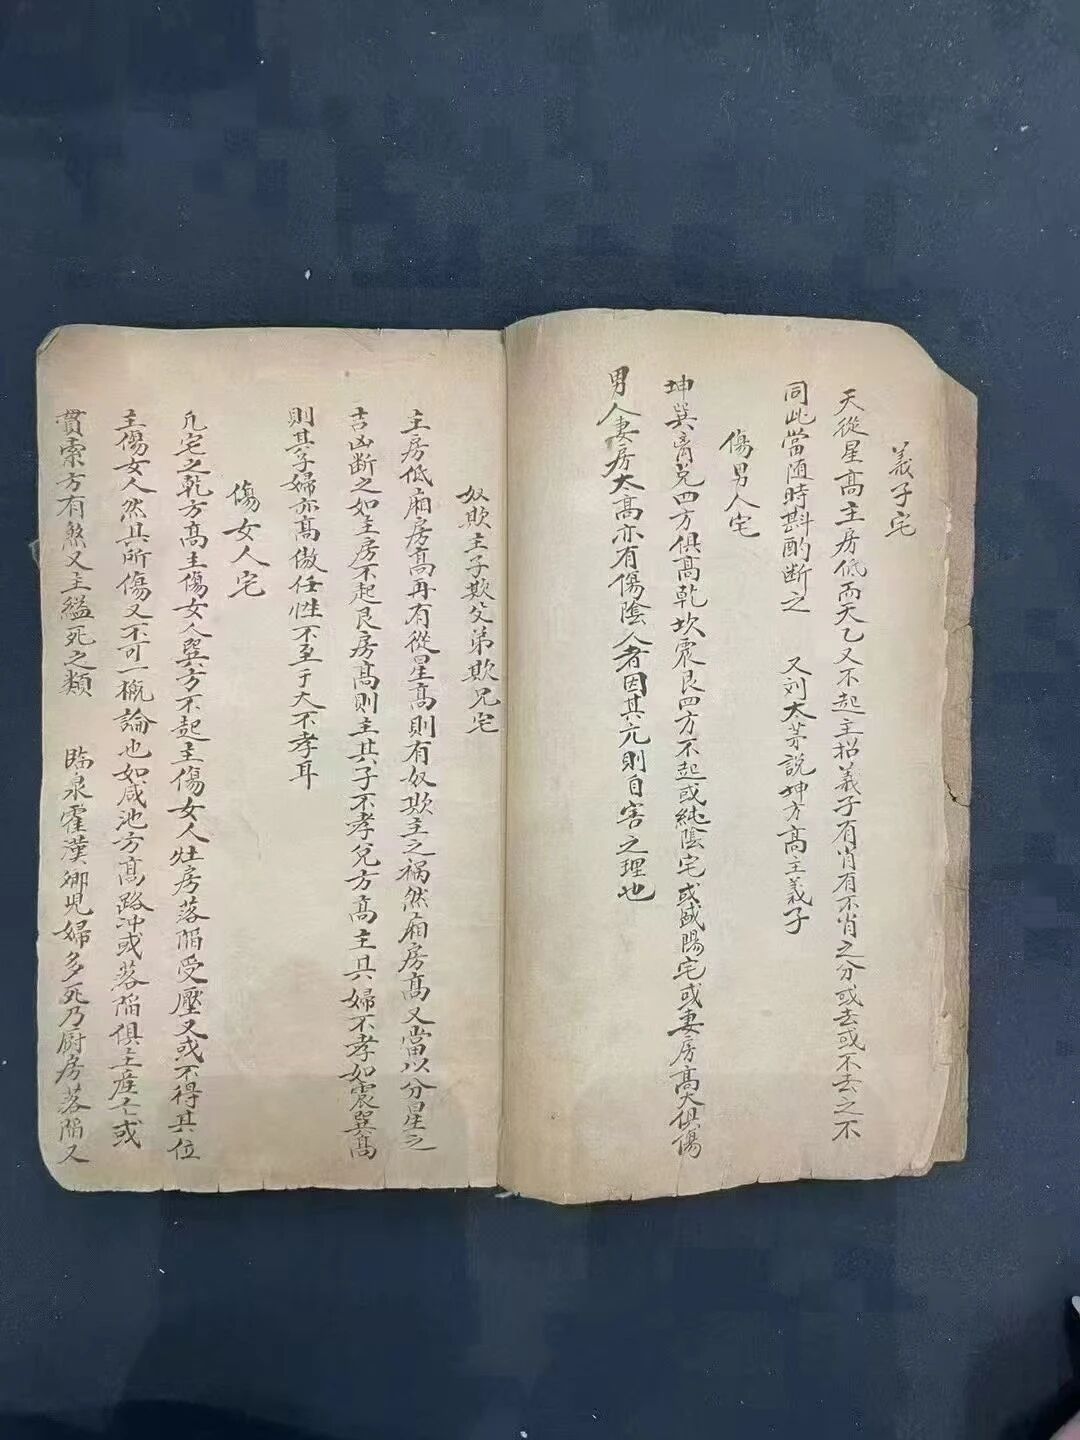 義子宅
天從星高主房低而天乙又不起主招義子有肖有不肖之分或去或不去之不
同此當随時斟酌断之　又刘太茅說坤方高主義子
傷男人宅
坤巽离兑四方俱高乾坎震艮四方不起或純陰宅或咸陽宅或妻房高大俱傷
男人妻房太高亦有傷陰人者因其亢則自害之理也
奴欺主子欺父弟欺兄宅
主房低廂房高再有從星高則有奴欺主之禍然廂房高又當以分星之
吉凶断之如主房不起艮房高則主其子不孝兑方高主其婦不孝如震巽高
則其子婦亦高傲任性不至于大不孝耳
傷女人宅
凡宅之乾方高主傷女人巽方不起主傷女人灶房落陷受壓又或不得其位
主傷女人然其所傷又不可一概論也如咸池方高路冲或落陷俱主産亡或
貫索方有煞又主縊死之類　臨泉霍漢卿児婦多死乃厨房落陷又